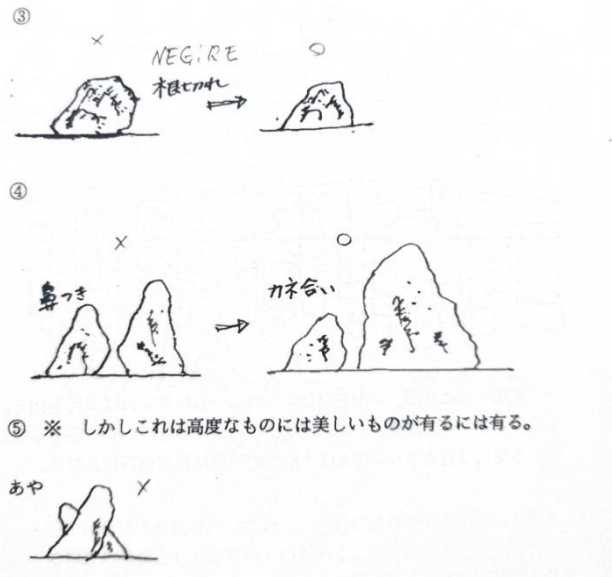 ③
×
NEGiRE
○
根切れ
④
×
○
鼻つき
カネ合い
⑤ ※ しかしこれは高度なものには美しいものが有るには有る。
あや
×